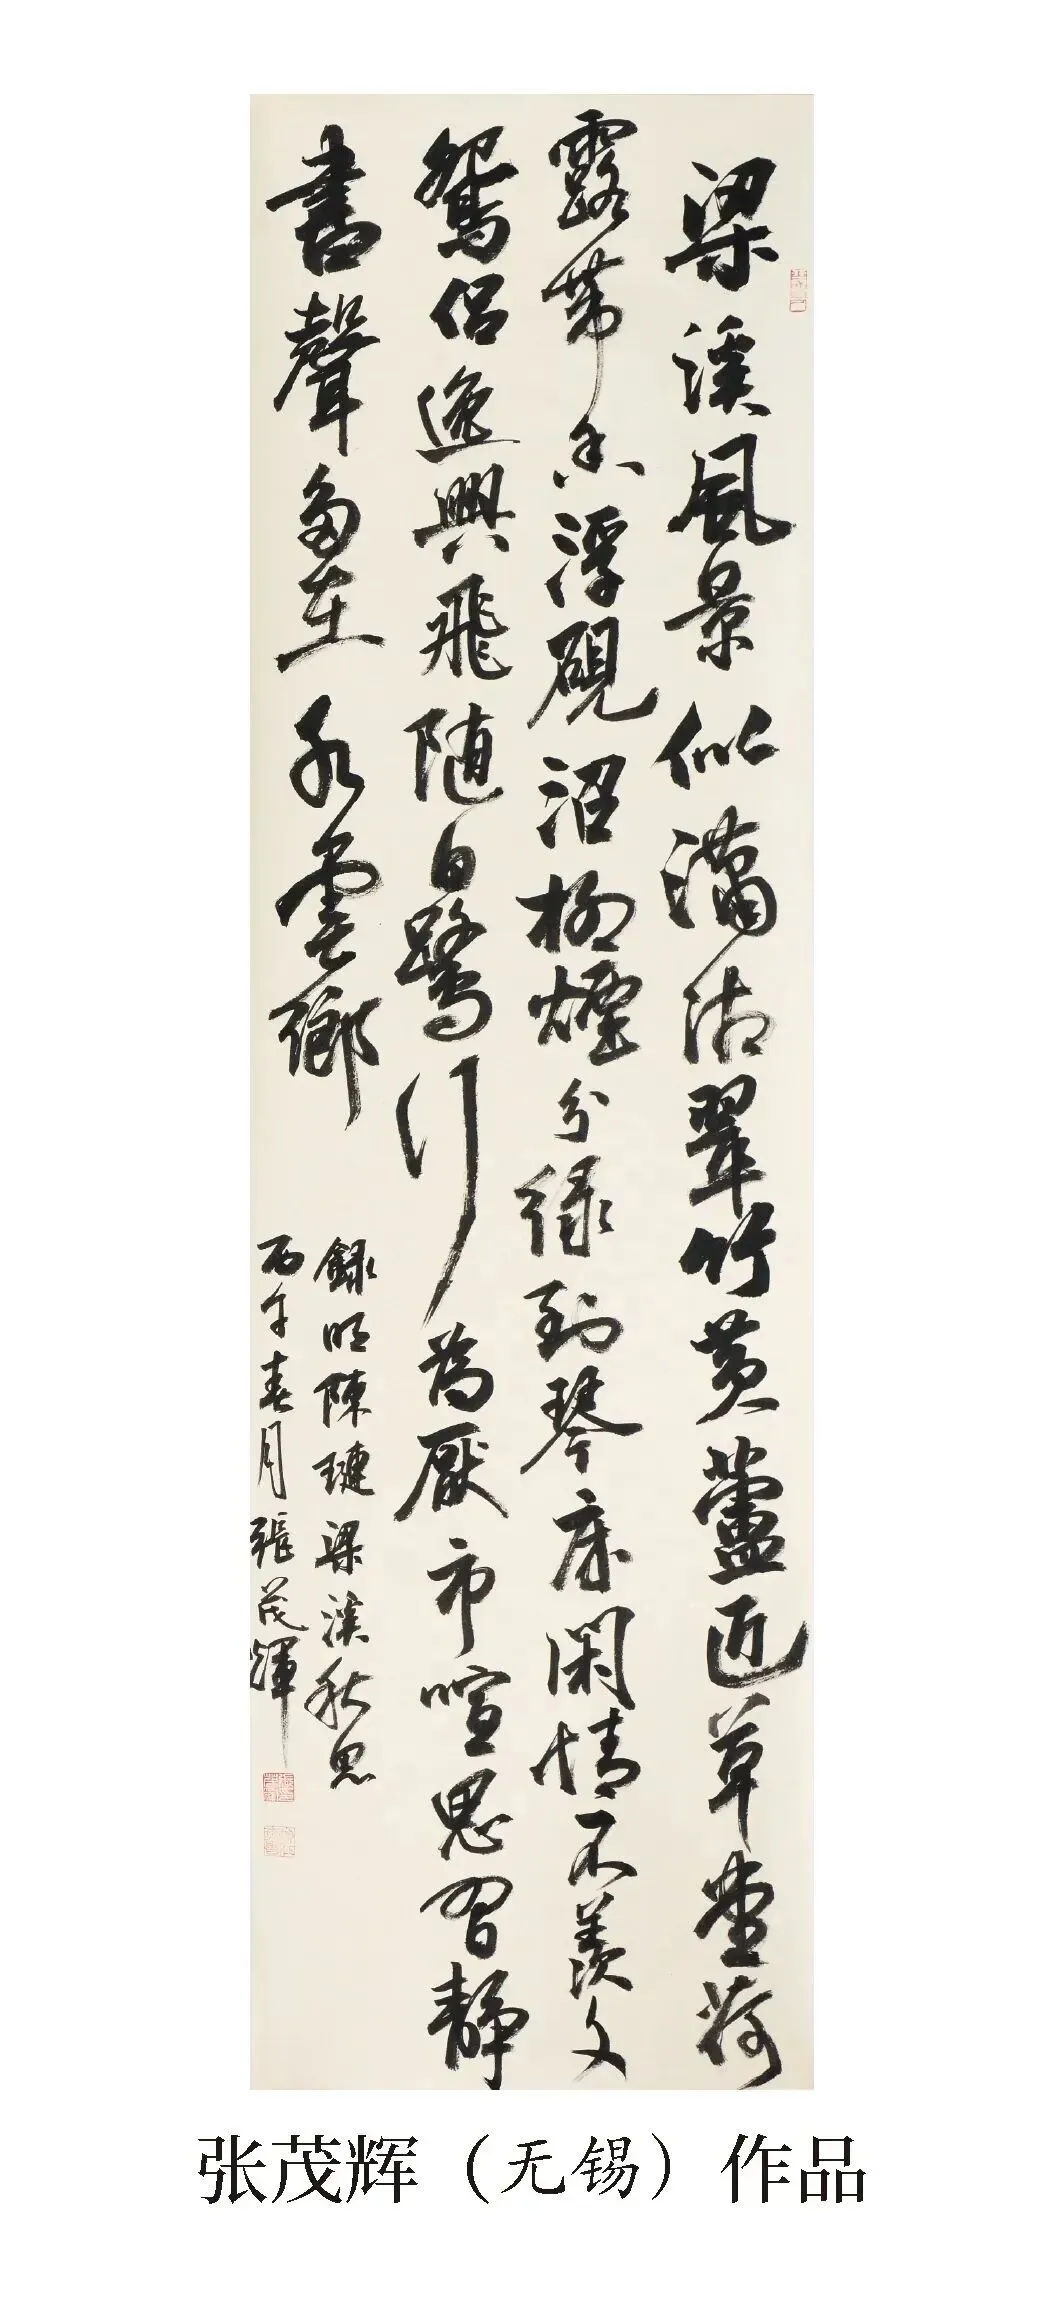 梁溪風景似瀟湘翠竹黃蘆近草堂荷
露帶香浮硯沼柳煙分綠到琴床閑情不羨文
鴛侶逸興飛随白鷺行為厭市喧思習静
書聲多在水雲鄉
録明陳璉梁溪秋思
丙午春月張茂輝
张茂辉（无锡）作品